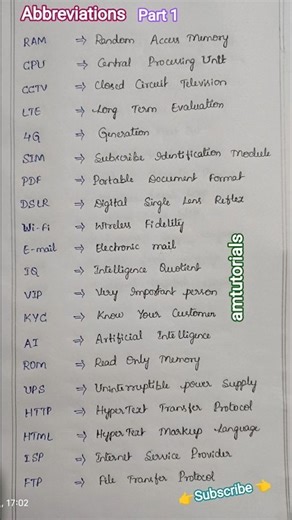 Abbreviations Part 1
RAM ⇒ Random Access Memory
CPU ⇒ Central Processing Unit
CCTV ⇒ Closed Circuit Television
LTE ⇒ Long Term Evaluation
4G ⇒ Generation
SIM ⇒ Subscribe Identification Module
PDF ⇒ Portable Document Format
DSLR ⇒ Digital Single Lens Reflex
Wi-Fi ⇒ Wireless Fidelity
E-mail ⇒ Electronic mail
IQ ⇒ Intelligence Quotient
VIP ⇒ Very Important person
KYC ⇒ Know Your Customer
AI ⇒ Artificial Intelligence
ROM ⇒ Read Only Memory
UPS ⇒ Uninterruptible power Supply
HTTP ⇒ HyperText Transfer Protocol
HTML ⇒ HyperText Markup Language
ISP ⇒ Internet Service Provider
FTP ⇒ File Transfer Protocol
amtutorials
👉Subscribe👈
, 17:02